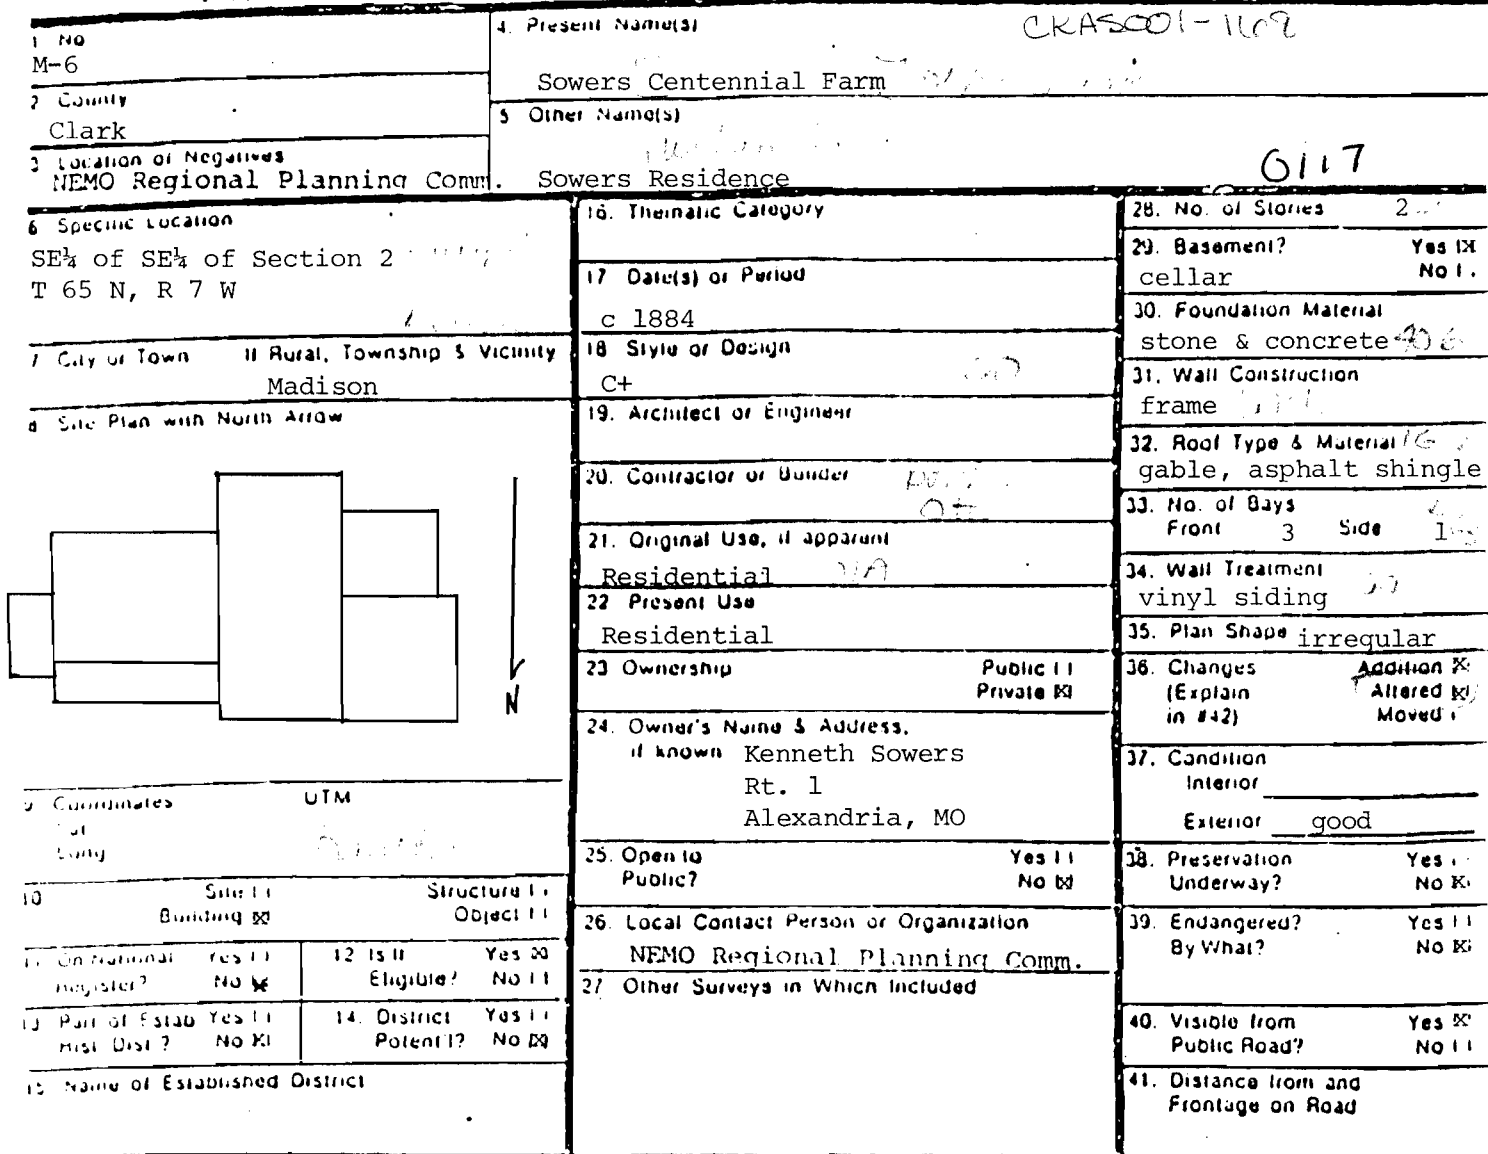 1 No
M-6
2 County
Clark
3 Location of Negatives
NEMO Regional Planning Comm.
4. Present Name(s)
CKAS001-1169
Sowers Centennial Farm
5 Other Name(s)
Sowers Residence
0117
6 Specific Location
SE¼ of SE¼ of Section 2
T 65 N, R 7 W
7 City or Town If Rural, Township & Vicinity
Madison
8 Site Plan with North Arrow
N
9 Coordinates UTM
Lat
Long
10 Site [ ] Structure [ ]
Building [X] Object [ ]
11 On National Yes [ ]
Register? No [X]
12 Is It Yes [X]
Eligible? No [ ]
13 Part of Estab Yes [ ]
Hist Dist? No [X]
14. District Yes [ ]
Potent'l? No [X]
15 Name of Established District
16. Thematic Category
17 Date(s) or Period
c 1884
18 Style or Design
C+
19. Architect or Engineer
20. Contractor or Builder
21. Original Use, if apparent
Residential N/A
22 Present Use
Residential
23 Ownership Public [ ]
Private [X]
24. Owner's Name & Address,
if known Kenneth Sowers
Rt. 1
Alexandria, MO
25. Open to Yes [ ]
Public? No [X]
26. Local Contact Person or Organization
NEMO Regional Planning Comm.
27 Other Surveys in Which Included
28. No. of Stories 2
29. Basement? Yes [X]
cellar No [ ]
30. Foundation Material
stone & concrete
31. Wall Construction
frame
32. Roof Type & Material
gable, asphalt shingle
33. No. of Bays
Front 3 Side 1
34. Wall Treatment
vinyl siding
35. Plan Shape irregular
36. Changes Addition [X]
(Explain Altered [X]
in #42) Moved [ ]
37. Condition
Interior
Exterior good
38. Preservation Yes [ ]
Underway? No [X]
39. Endangered? Yes [ ]
By What? No [X]
40. Visible from Yes [X]
Public Road? No [ ]
41. Distance from and
Frontage on Road